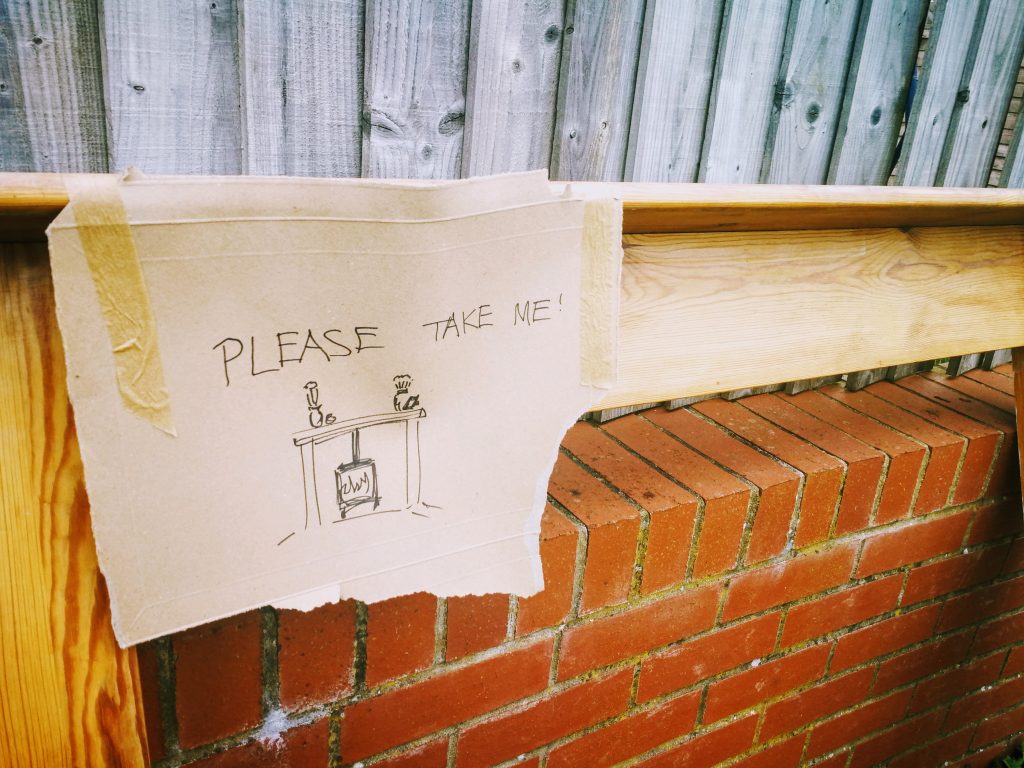 PLEASE TAKE ME!